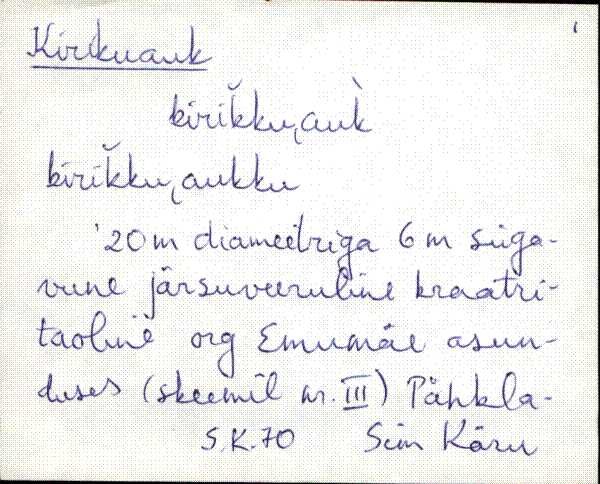 Kirikuauk
kirĭkku̖auk̀
kirĭkku̖aukku
'20 m diameetriga 6 m süga-
vune järsuveeruline kraatri-
taoline org Emumäe asun-
duses (skeemil nr. III) Pähkla-
S.K.70 Siim Käru